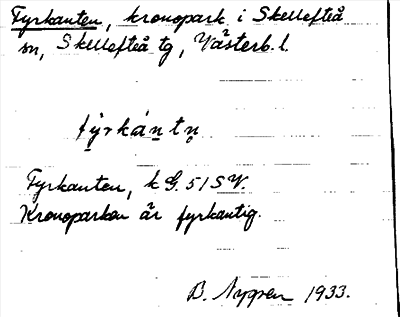 Fyrkanten, kronopark i Skellefteå
sn, Skellefteå tg, Västerb. l.
fýrkántn̥
Fyrkanten, k G. 51 SV.
Kronoparken är fyrkantig.
B. Nygren 1933.